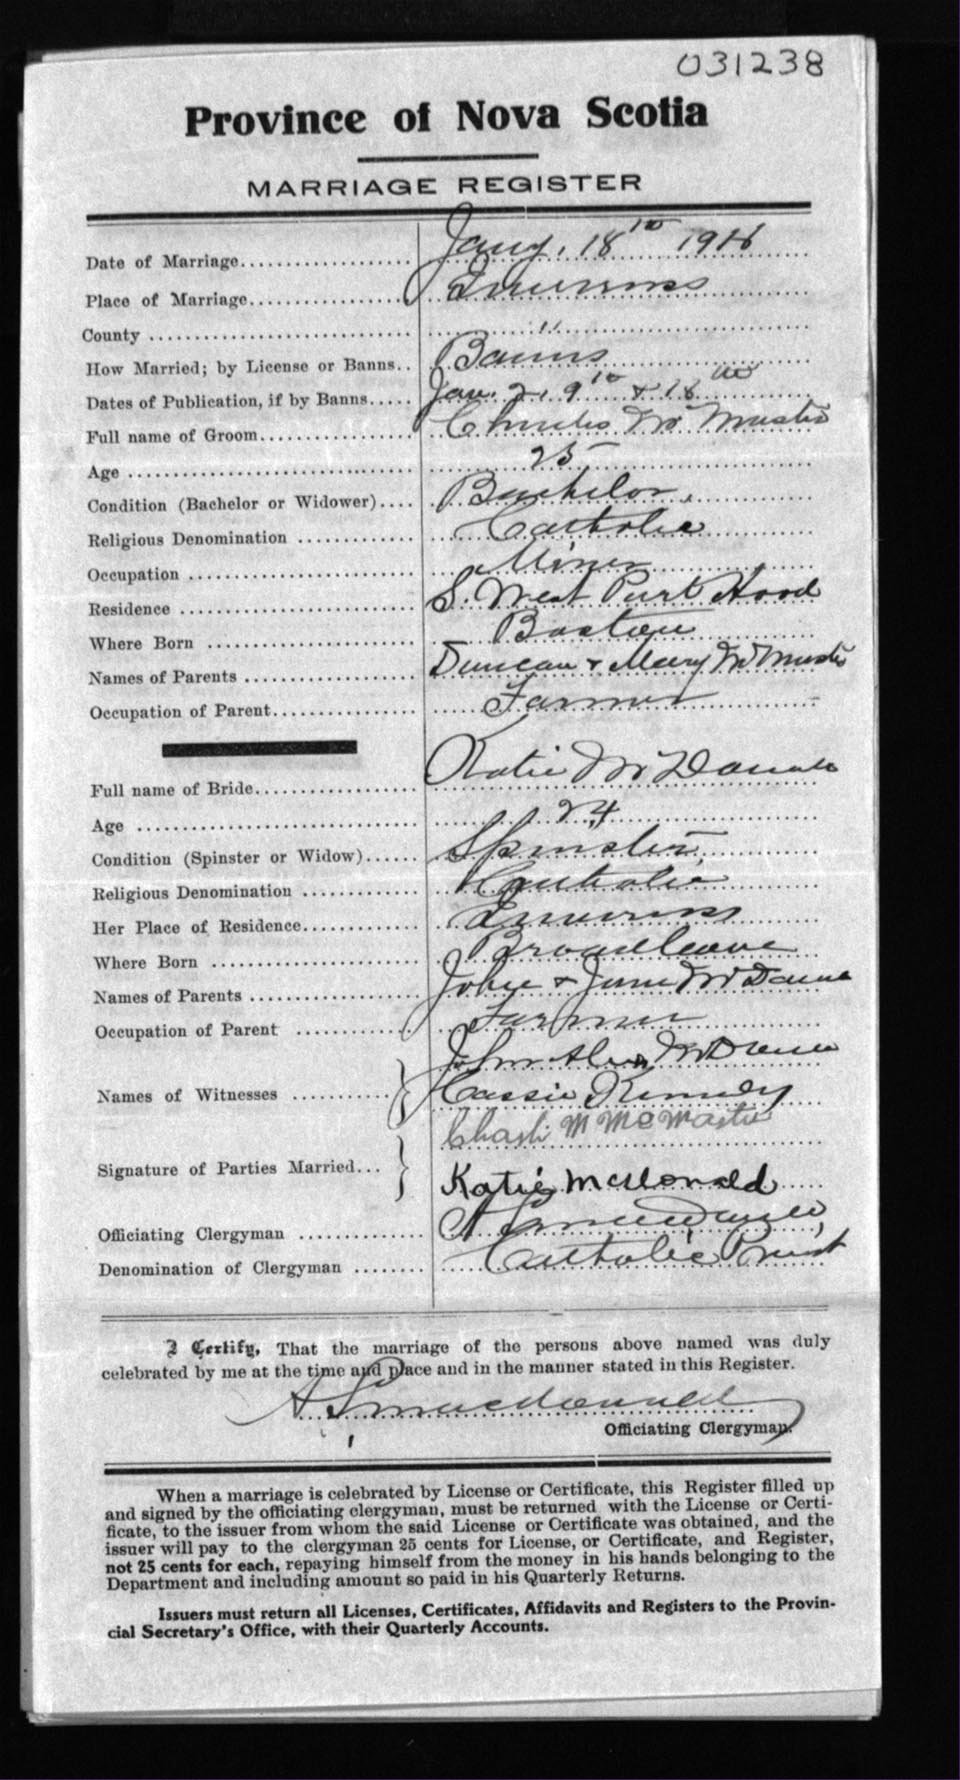 031238
Province of Nova Scotia
MARRIAGE REGISTER
Date of Marriage Jany. 18th 1916
Place of Marriage Inverness
County "
How Married; by License or Banns Banns
Dates of Publication, if by Banns Jan. 2, 9th & 16th
Full name of Groom Charles Mc Master
Age 25
Condition (Bachelor or Widower) Bachelor
Religious Denomination Catholic
Occupation Miner
Residence S. West Port Hood
Where Born Boston
Names of Parents Duncan & Mary McMaster
Occupation of Parent Farmer
Full name of Bride Katie Mc Donald
Age 24
Condition (Spinster or Widow) Spinster
Religious Denomination Catholic
Her Place of Residence Inverness
Where Born Broad Cove
Names of Parents John & Jane McDonald
Occupation of Parent Farmer
John Alex McDonald
Names of Witnesses Cassie Kennedy
M McMaster
Signature of Parties Married
Katie McDonald
Officiating Clergyman A
Denomination of Clergyman Catholic Priest
I Certify, That the marriage of the persons above named was duly
celebrated by me at the time and place and in the manner stated in this Register.
Macdonald
Officiating Clergyman.
When a marriage is celebrated by License or Certificate, this Register filled up
and signed by the officiating clergyman, must be returned with the License or Certi-
ficate, to the issuer from whom the said License or Certificate was obtained, and the
issuer will pay to the clergyman 25 cents for License, or Certificate, and Register,
not 25 cents for each, repaying himself from the money in his hands belonging to the
Department and including amount so paid in his Quarterly Returns.
Issuers must return all Licenses, Certificates, Affidavits and Registers to the Provin-
cial Secretary's Office, with their Quarterly Accounts.